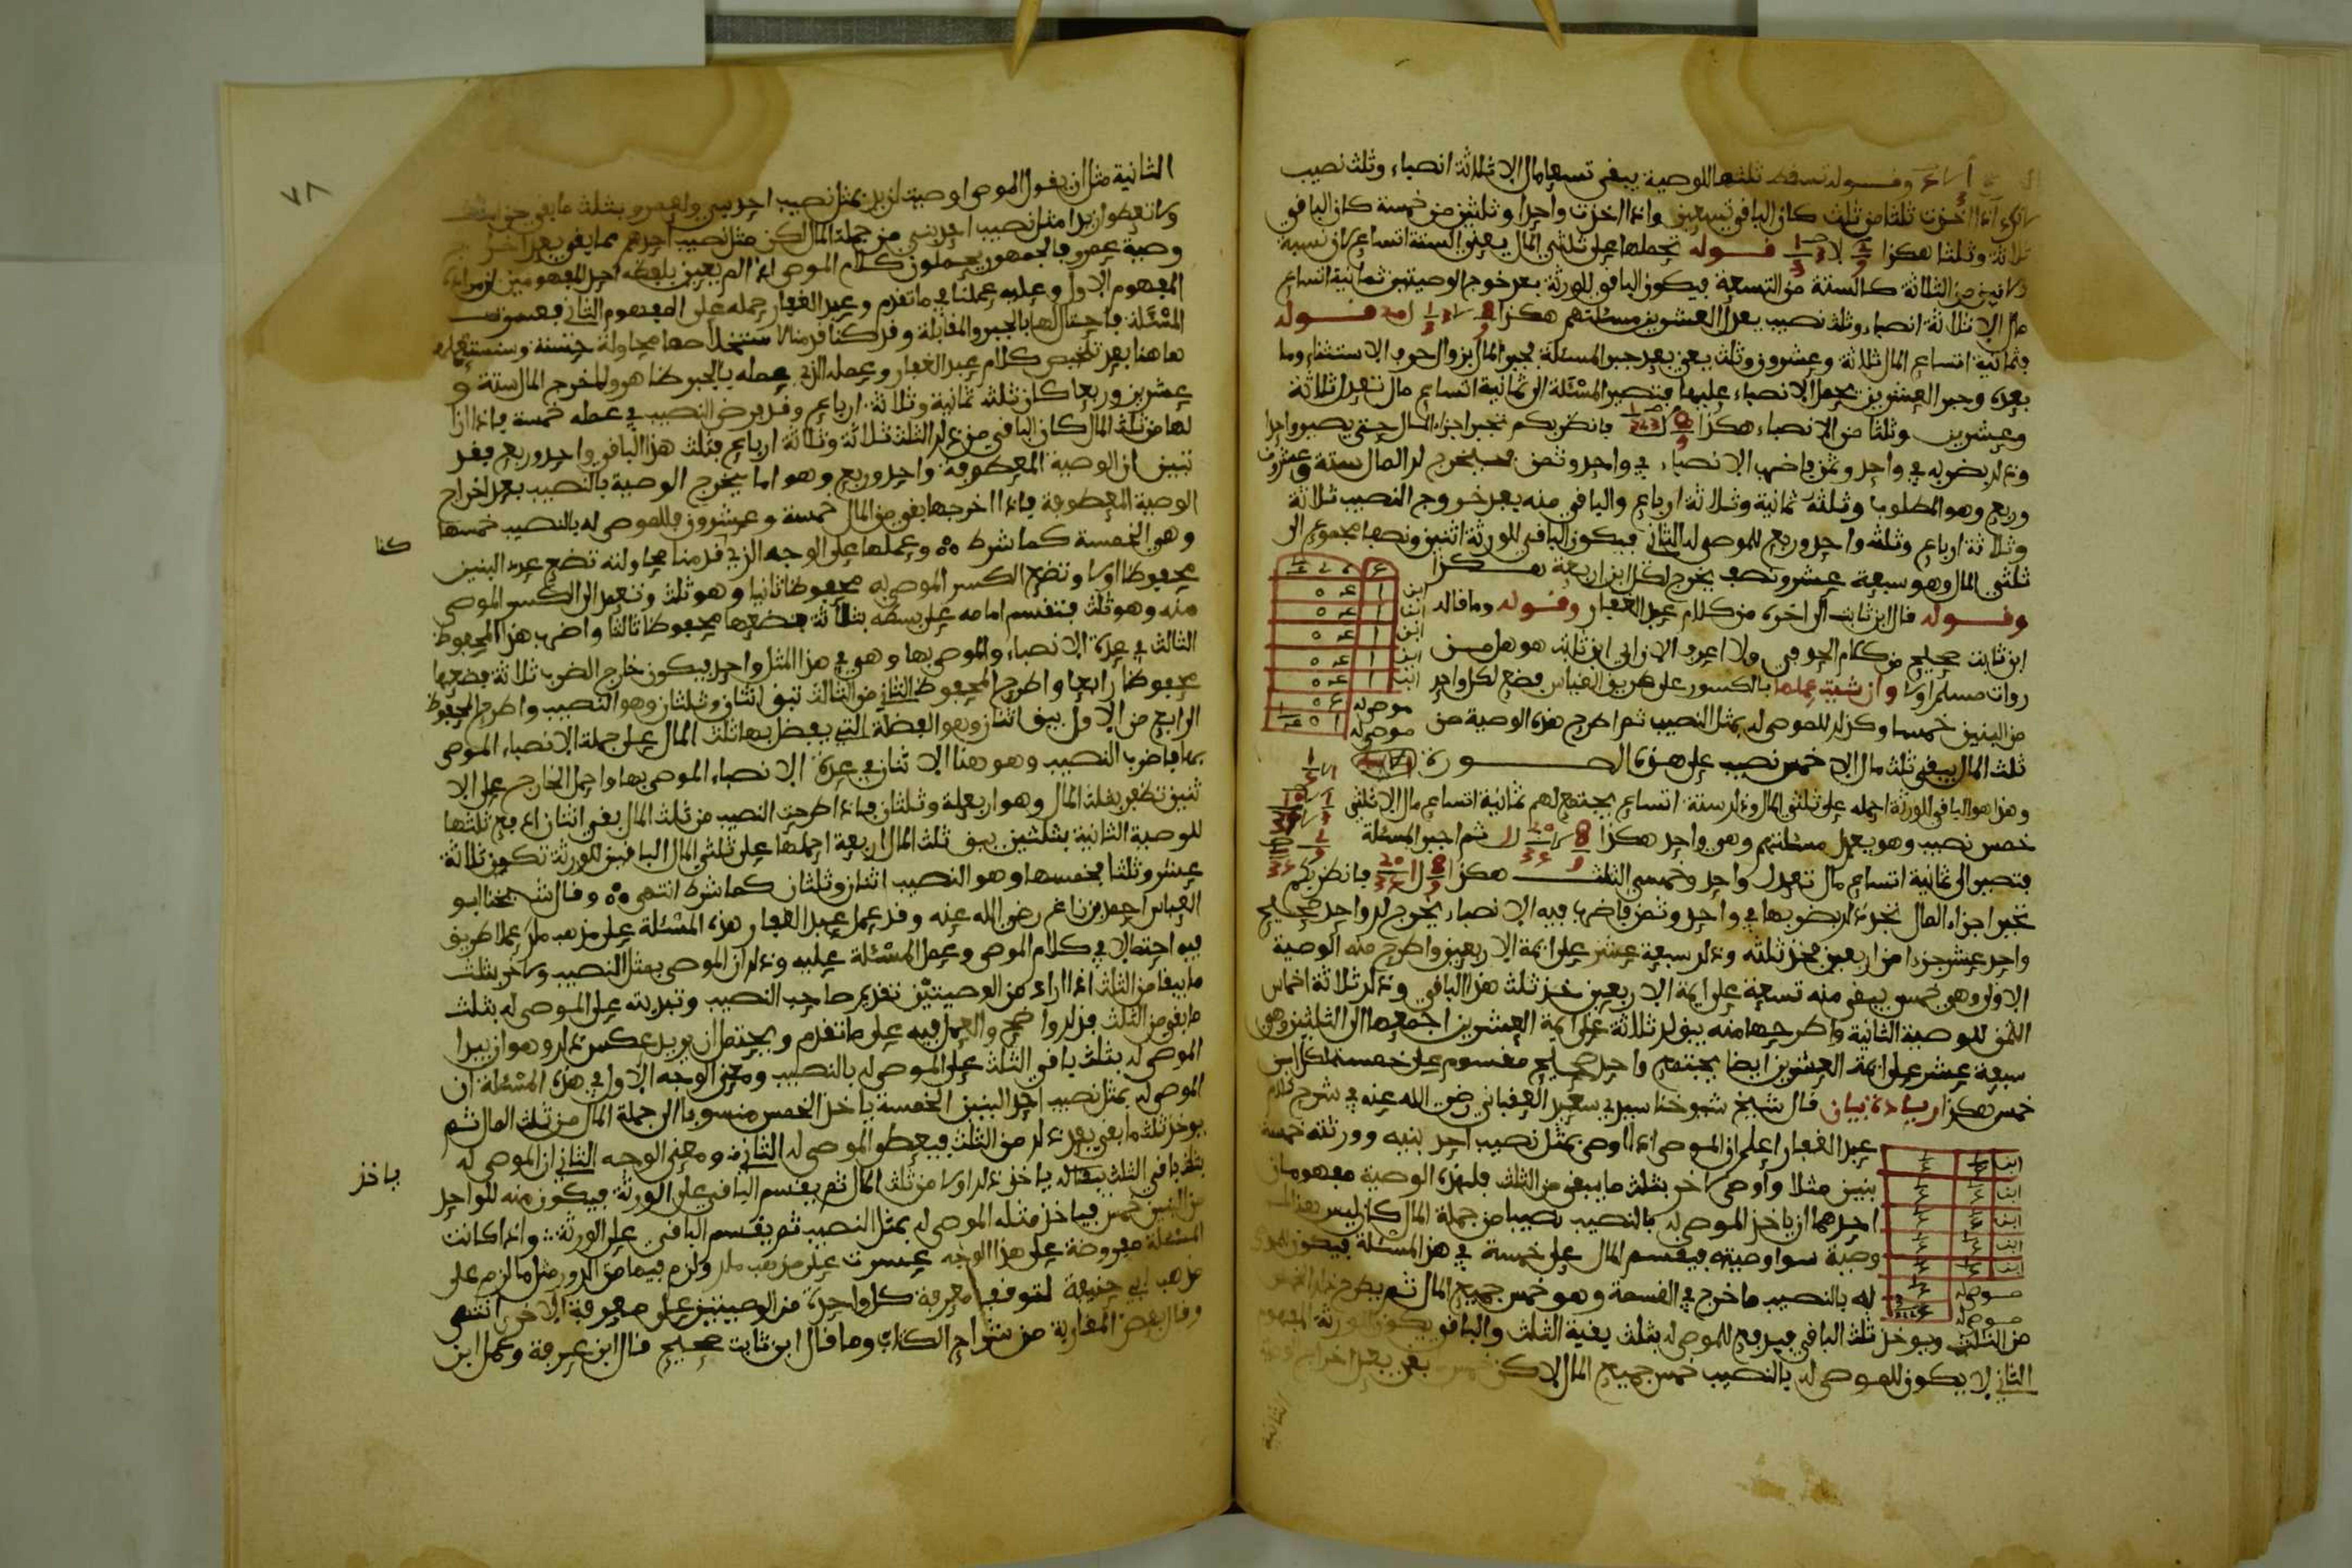 وقوله تسقط ثلثها للوصية يبقى تسعا مال الا ثلاثة انصباء وثلث نصيب
اخذت ثلثا من ثلث كان الباقي تسعين واذا اخذت واحدا وثلثين من خمسة كان الباقي
ثلاثة وثلثا هكذا قوله تحملها على ثلثي المال يعني الستة اتساع لان نسبة
من الثلاثة كالستة من التسعة فيكون الباقي للورثة بعد خروج الوصيتين ثمانية اتساع
مال الا ثلاثة انصباء وثلث نصيب يعدل العشرين مسئلتهم هكذا قوله
بثمانية اتساع المال ثلاثة وعشرون وثلث يعني بعد جبر المسئلة يجبر المال بزوال حرف الاستثناء وما
بعده وجبر العشرين بحمل الانصباء عليها فتصير المسئلة الى ثمانية اتساع مال تعدل ثلاثة
وعشرين وثلثا من الانصباء هكذا فانظر بكم تجبر اجزاء المال حتى يصير واحدا
وذلك بضربه في واحد وثمن فاضرب الانصباء في واحد وثمن يخرج لك المال ستة وعشرون
وربع وهو المطلوب وثلثه ثمانية وثلاثة ارباع والباقي منه بعد خروج النصيب ثلاثة
وثلاثة ارباع وثلثه واحد وربع للموصى له الثاني فيكون الباقي للورثة اثنين ونصفا مجموع الى
ثلثي المال وهو سبعة عشر ونصف يخرج لكل ابن اربعة هكذا
وقوله قال ابن ثابت الى اخره من كلام عبد الغفار وقوله وما قاله
ابن ثابت صحيح من كلام الحوفي ولا اعرف الان ابن ثابت هو هل من
روات مسلم او لا وان شئت عملها بالكسور على طريق القياس فضع لكل واحد
من البنين خمسا وكذلك للموصى له بمثل النصيب ثم اطرح هذه الوصية من
ثلث المال يبقى ثلث مال الا خمس نصيب على هذه الصورة
وهذا هو الباقي للورثة احمله على ثلثي المال وذلك ستة اتساع يجتمع لهم ثمانية اتساع مال الا ثلثي
خمس نصيب وهو يعدل مسئلتهم وهي واحد هكذا ثم اجبر المسئلة
فتصير الى ثمانية اتساع مال تعدل واحد وخمسي الثلث هكذا فانظر بكم
تجبر اجزاء المال تجد ذلك بضربها في واحد وثمن فاضرب فيه الانصباء يخرج لك واحد صحيح
واحد عشر جزءا من اربعين فخذ ثلثه وذلك سبعة عشر على ايمة الاربعين واطرح منه الوصية
الاولى وهي خمس يبقى منه تسعة على ايمة الاربعين خذ ثلث هذا الباقي وذلك ثلاثة اخماس
الثمن للوصية الثانية واطرحها منه يبق لك ثلاثة على ايمة العشرين اجمعها الى الثلثين وهو
سبعة عشر على ايمة العشرين ايضا يجتمع واحد صحيح مقسوم على خمسة لكل ابن
خمس هكذا زيادة بيان قال شيخ شيوخنا سيدي سعيد العقباني رضي الله عنه في شرح كلام
عبد الغفار اعلم ان الموصي اذا اوصى بمثل نصيب احد بنيه وورثته خمسة
بنين مثلا واوصى لاخر بثلث ما يبقى من الثلث فلهذه الوصية مفهومان
احدهما ان ياخذ الموصى له بالنصيب نصيبا من جملة المال كان ليس
وصية سوا وصيته فيقسم المال على خمسة في هذه المسئلة فيكون
له بالنصيب ما خرج في القسمة وهو خمس جميع المال ثم يطرح
من الثلث ويوخذ ثلث الباقي فيدفع للموصى له بثلث بقية الثلث والباقي يكون للورثة المفهوم
الثاني لا يكون للموصى له بالنصيب خمس جميع المال لاكن خمس بقي بعد اخراج
الثانية
ابن
ابن
ابن
ابن
ابن
موصى له
موصى له
ابن
ابن
ابن
ابن
ابن
موصى له
موصى له
٧٨
الثانية مثل ان يقول الموصي اوصيت لزيد بمثل نصيب احد بني ولعمرو بثلث ما بقي
ولا تعطوا زيدا مثل نصيب احد بني من جملة المال لكن مثل نصيب احدهم مما يبقى بعد
وصية عمرو فالجمهور يحملون كلام الموصي اذا لم يعين بلفظه احد المفهومين
المفهوم الاول وعليه عملنا في ما تقدم وعبد الغفار حمله على المفهوم الثاني فعسرت
المسئلة فاحتال لها بالجبر والمقابلة وقد كنا قدمنا
ها هنا بعد تلخيص كلام عبد الغفار وعمله الذي عمله بالجبر
عشرين وربعا كان ثلثه ثمانية وثلاثة ارباع وقد فرض النصيب في عمله خمسة فاذا
لها من ثلث المال كان الباقي من ذلك الثلث ثلاثة وثلاثة ارباع فثلث هذا الباقي واحد وربع فقد
تبين ان الوصية المعطوفة واحد وربع وهو اما يخرج الوصية بالنصيب بعد اخراج
الوصية المعطوفة فاذا اخرجها بقي من المال خمسة وعشرون فللموصى له بالنصيب خمسها
وهو الخمسة كما شرط وعملها على الوجه الذي قدمنا محاولته تضع عدد البنين
محفوظا اولا وتضع الكسر الموصى به محفوظا ثانيا وهو ثلث وتعمد الى الكسر الموصى
منه وهو ثلث فتقسم امامه على بسطه بثلاثة فضعها محفوظا ثالثا واضرب هذا المحفوظ
الثالث في عدة الانصباء والموصى بها وهو في هذا المثل واحد فيكون خارج الضرب ثلاثة فضعها
محفوظا رابعا واطرح المحفوظ الثاني من الثالث تبق اثنان وثلثان وهو النصيب واطرح المحفوظ
الرابع من الاول يبق اثنان وهو الفضلة التي يفضل بها ثلث المال على جملة الانصباء الموصى
بها فاضرب النصيب وهو هنا الاثنان في عدة الانصباء الموصى بها واحمل الخارج على الا
ثنين تظفر بثلث المال وهو اربعة وثلثان فاذا اطرحت النصيب من ثلث المال بقي اثنان ادفع ثلثها
للوصية الثانية بثلثين يبق ثلث المال اربعة احملها على ثلثي المال الباقين للورثة تكون ثلاثة
عشر وثلثا فخمسها هو النصيب اثنان وثلثان كما شرط انتهى وقال شيخنا ابو
العباس احمد بن زاغ رضي الله عنه وقد عمل عبد الغفار هذه المسئلة على مذهب ملك عملا طريق
فيه احتمالا في كلام الموصي وعمل المسئلة عليه وذلك ان الموصي بمثل النصيب ولاخر بثلث
ما يبقا من الثلث اذا اراد من الوصيتين تقديم صاحب النصيب وتبديته على الموصى له بثلث
ما بقي من الثلث فذلك واضح والعمل فيه على ما تقدم ويحتمل ان يريد عكس ذلك وهو ان يبدا
الموصى له بثلث باقي الثلث على الموصى له بالنصيب ومعنى الوجه الاول في هذه المسئلة ان
الموصى له بمثل نصيب احد البنين الخمسة ياخذ الخمس منسوبا الى جملة المال من ثلث المال ثم
يوخذ ثلث ما بقي بعد ذلك من الثلث فيعطى الموصى له الثاني ومعنى الوجه الثاني ان الموصى له
بثلث باقي الثلث ياخذ ذلك اولا من ثلث المال ثم يقسم الباقي على الورثة فيكون منه للواحد
من البنين خمس فياخذ مثله الموصى له بمثل النصيب ثم يقسم الباقي على الورثة واذا كانت
المسئلة مفروضة على هذا الوجه عسرت على مذهب ملك ولزم فيها من الدور مثل ما لزم على
مذهب ابي حنيفة لتوقف معرفة كل واحدة من الوصيتين على معرفة الاخرى انتهى
وقال بعض المغاربة من شراح الكتاب وما قال ابن ثابت صحيح قال ابن عرفة وعمل ابن
ياخذ